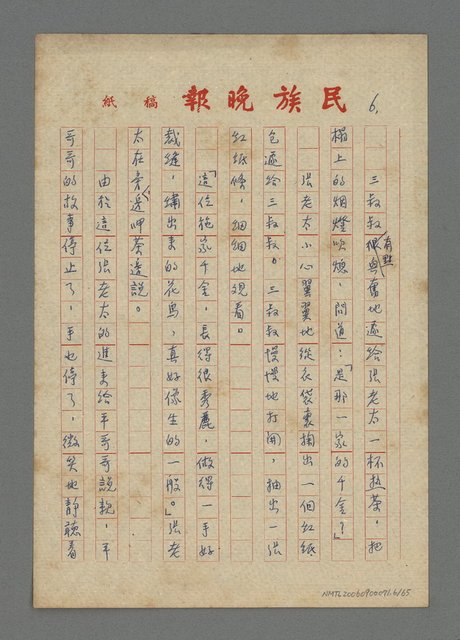 6.
民族晚報 稿紙
三叔叔很興奮地遞給張老太一杯熱茶,把
有點
榻上的烟燈吹熄,問道:「是那一家的千金?」
張老太小心翼翼地從衣袋裏掏出一個紅紙
包遞給三叔叔。三叔叔慢慢地打開,抽出一張
紅紙條,細細地覌看。
「這位施家千金,長得很秀麗,做得一手好
裁縫,繡出來的花鳥,真好像生的一般。」張老
太在旁邊呷茶邊說。
由於這位張老太的進來給平哥哥說親,平
哥哥的故事停止了,手也停了,微笑地靜聽着
NMTL20060900091.6/65